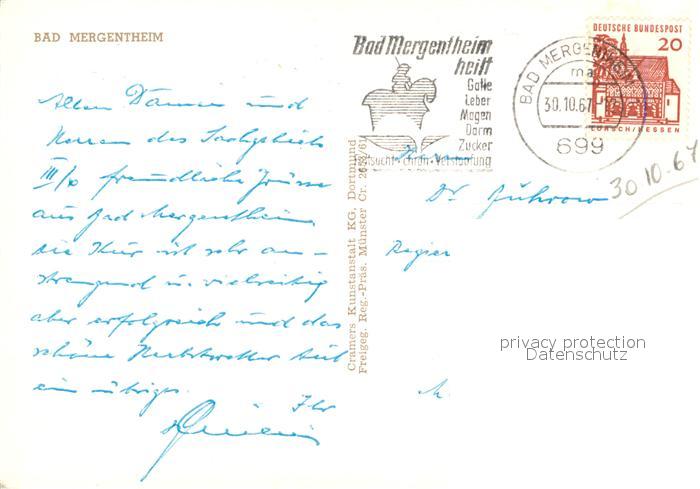 BAD MERGENTHEIM
Allen Damen und
Herren des Sachgebiets
III/ freundliche Grüsse
aus Bad Mergentheim
die Kur ist sehr an-
strengend u. vielseitig
aber erfolgreich und das
schöne Herbstwetter tut
ein übriges.
Ihr
Cramers Kunstanstalt KG. Dortmund
Freigeg. Reg.-Präs. Münster Cr.
Bad Mergentheim
heilt
Galle
Leber
Magen
Darm
Zucker
Fettsucht · chron · Verstopfung
BAD MERGENTHEIM
ma
30.10.67
699
DEUTSCHE BUNDESPOST
20
LORSCH/HESSEN
30 10. 67
Dr.
Regier
privacy protection
Datenschutz